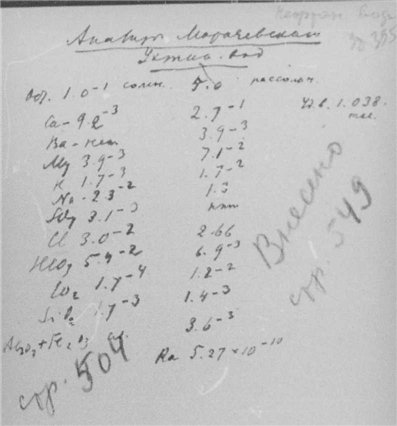 Анализы Морачевского
Ухтин. вод
1.0-1 солен. 5.0 рассольн.
Ca - 9.2-3 2.7-1 Уд. в. 1.038
Ba - нет 3.9-3
Mg 3.9-3 7.1-2
K 1.7-3 1.7-2
Na - 2.3-2 1.3
SO4 3.1-3 нет
Cl 3.0-2 2.66
HCO3 5.4-2 6.9-3
CO2 1.7-4 1.2-2
SiO2 1.7-3 1.4-3
Al2O3 + Fe2O3 3.6-3
Ra 5.27 × 10-10
стр. 504
Внесено
стр. 549